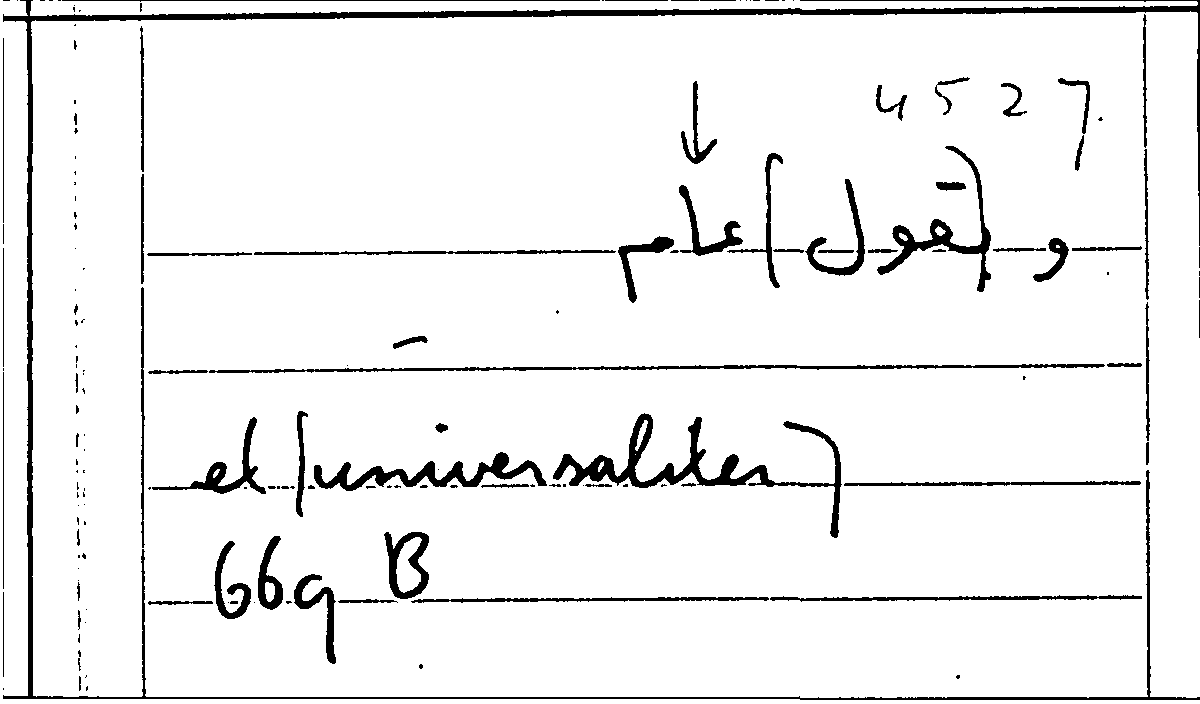 4527
↓
و (بقول) عام
et (universaliter)
669 B